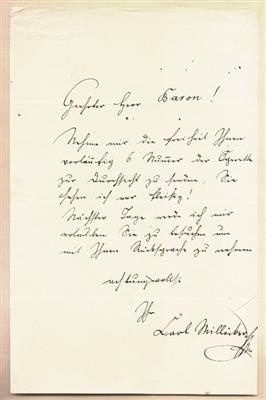 Geehrter Herr Baron!
Nehme mir die Freiheit Ihnen
vorläufig 6 Numer der Operette
zur Durchsicht zu senden, Sie
sehen ich war fleißig!
Nächster Tage werde ich mir
erlauben Sie zu besuchen um
mit Ihnen Rücksprache zu nehmen
achtungsvollst
Ihr
Carl Millöcker